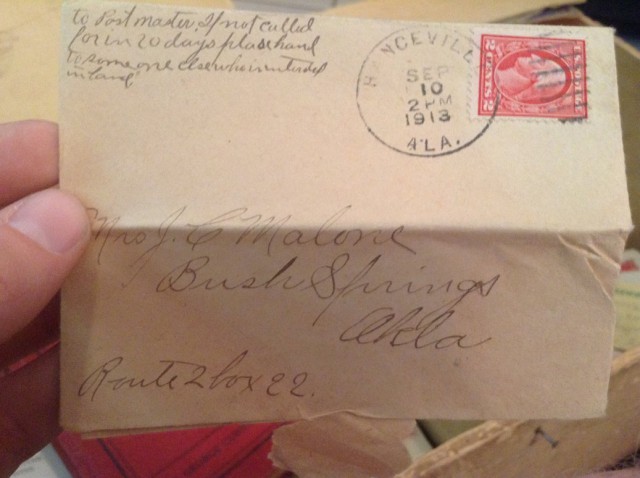 to Post master, If not called
for in 20 days please hand
to some one else who is intersted
in land
HANCEVILLE
SEP
10
2 PM
1913
ALA.
2 CENTS 2
Mrs J. C Malone
Bush Springs
Okla
Route 2 box 22.